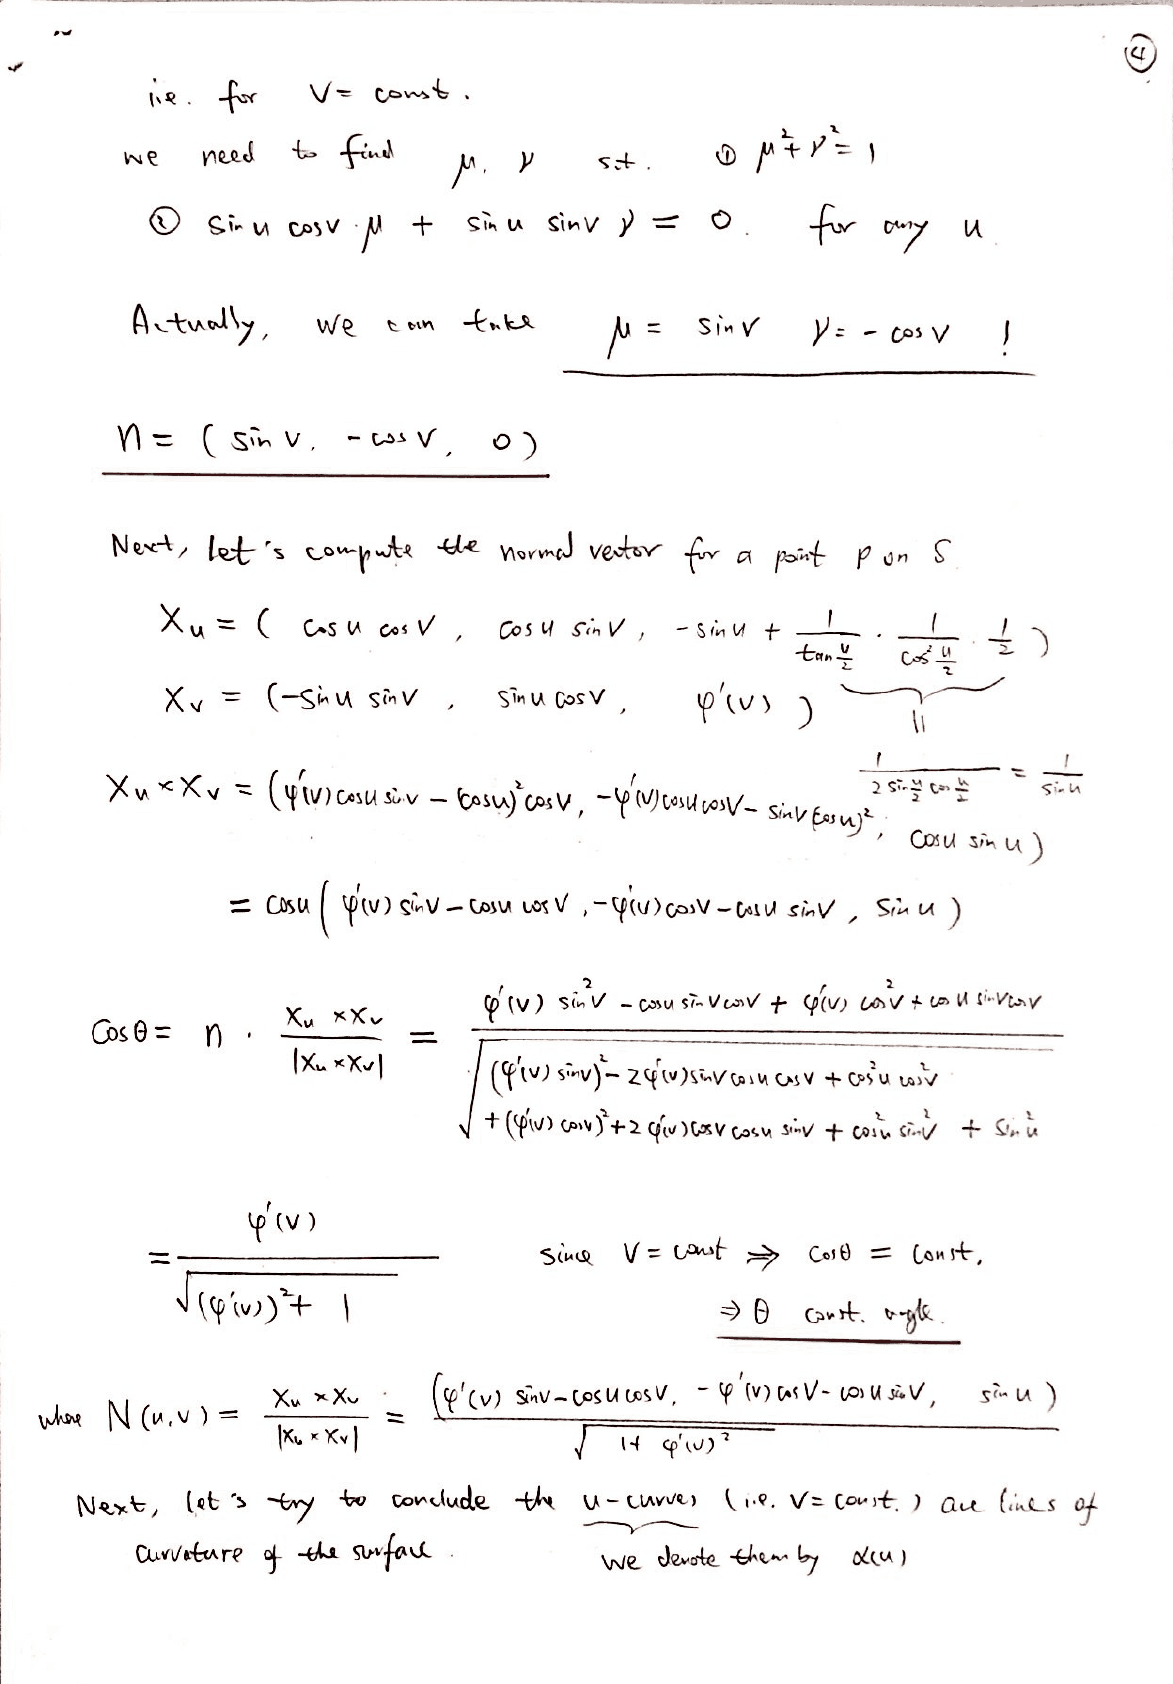 ④
i.e. for V = const.
we need to find μ, ν s.t. ① μ² + ν² = 1
② sin u cos v · μ + sin u sin v ν = 0. for any u.
Actually, we can take μ = sin v ν = - cos v !
n = ( sin v, - cos v, 0 )
Next, let's compute the normal vector for a point p on S
Xu = ( cos u cos v , cos u sin v , - sin u + 1/(tan u/2) · 1/(cos² u/2) · 1/2 )
Xv = (-sin u sin v , sin u cos v , φ'(v) )
||
1/(2 sin u/2 cos u/2) = 1/(sin u)
Xu × Xv = (φ'(v) cos u sin v - (cos u)² cos v, -φ'(v) cos u cos v - sin v (cos u)², cos u sin u )
= cos u ( φ'(v) sin v - cos u cos v , -φ'(v) cos v - cos u sin v , sin u )
Cos θ = n · (Xu × Xv)/|Xu × Xv| = (φ'(v) sin² v - cos u sin v cos v + φ'(v) cos² v + cos u sin v cos v)/√((φ'(v) sin v)² - 2φ'(v) sin v cos u cos v + cos² u cos² v
+ (φ'(v) cos v)² + 2 φ'(v) cos v cos u sin v + cos² u sin² v + sin² u)
= φ'(v)/√((φ'(v))² + 1) since V = const ⇒ cos θ = const,
⇒ θ const. angle.
where N(u,v) = (Xu × Xv)/|Xu × Xv| = (φ'(v) sin v - cos u cos v, - φ'(v) cos v - cos u sin v, sin u )/√(1 + φ'(v)²)
Next, let's try to conclude the u-curves (i.e. v = const. ) are lines of
curvature of the surface. we denote them by α(u)